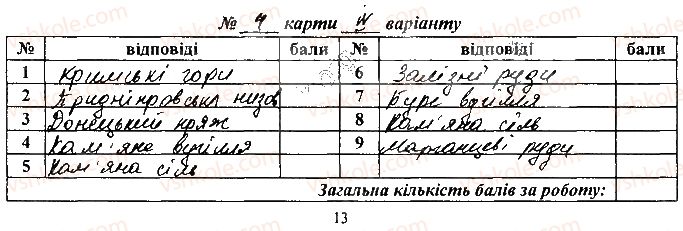 № 4 карти IV варіанту
№ відповіді бали № відповіді бали
1 Кримські гори 6 Залізні руди
2 Придніпровська низов 7 Буре вугілля
3 Донецький кряж 8 Кам'яна сіль
4 Кам'яне вугілля 9 Марганцеві руди
5 Кам'яна сіль
Загальна кількість балів за роботу:
13